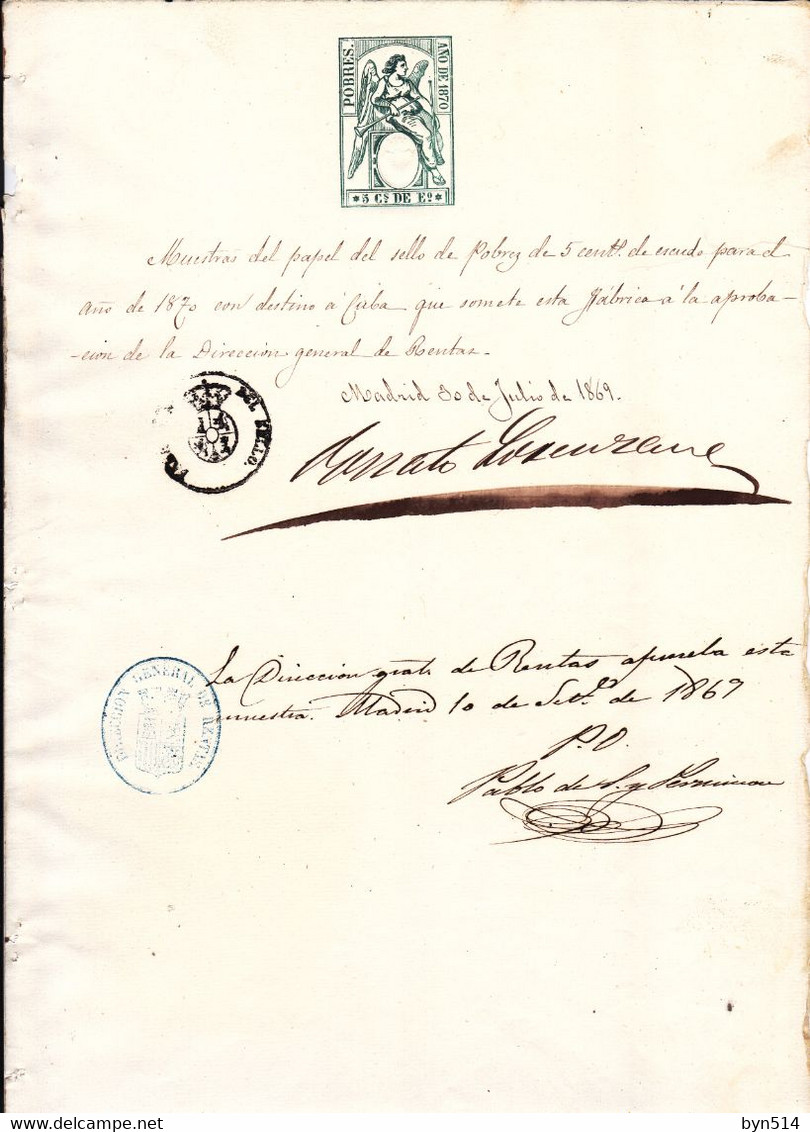 POBRES.
AÑO DE 1870
* 5 Cs DE Eo *
Muestras del papel del sello de Pobres de 5 cents. de escudo para el
año de 1870 con destino á Cuba que somete esta Fábrica á la aproba-
-cion de la Direccion general de Rentas.
Madrid 30 de Julio de 1869.
DEL SELLO.
La Direccion gral. de Rentas aprueba esta
muestra. Madrid 10 de Set.re de 1869
P.O.
Pablo de S. y
DIRECCION GENERAL DE RENTAS
byn514